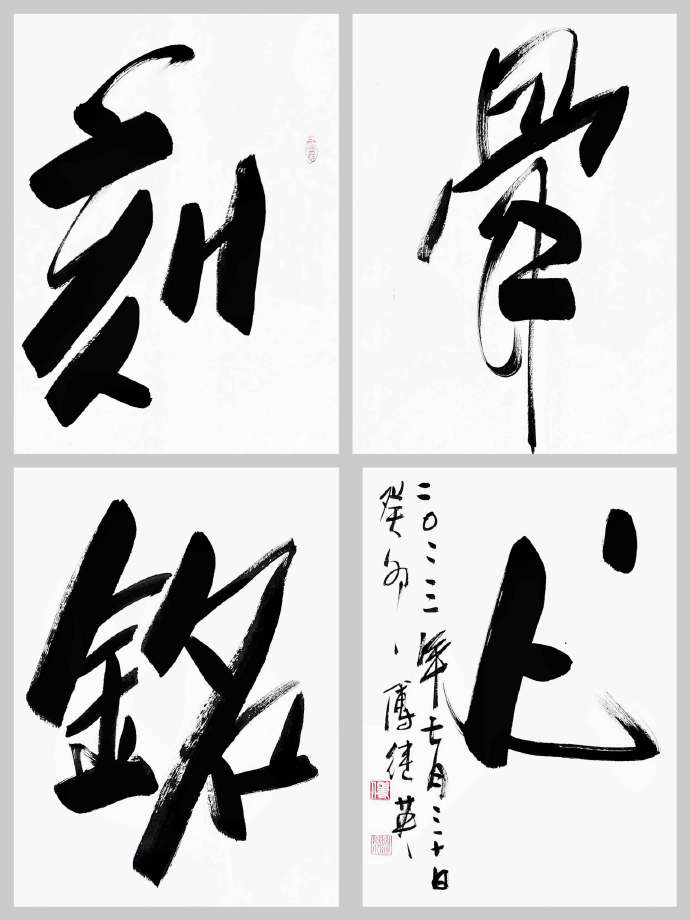 刻
骨
銘
心
二〇二三年七月三十日
癸卯 傅继英